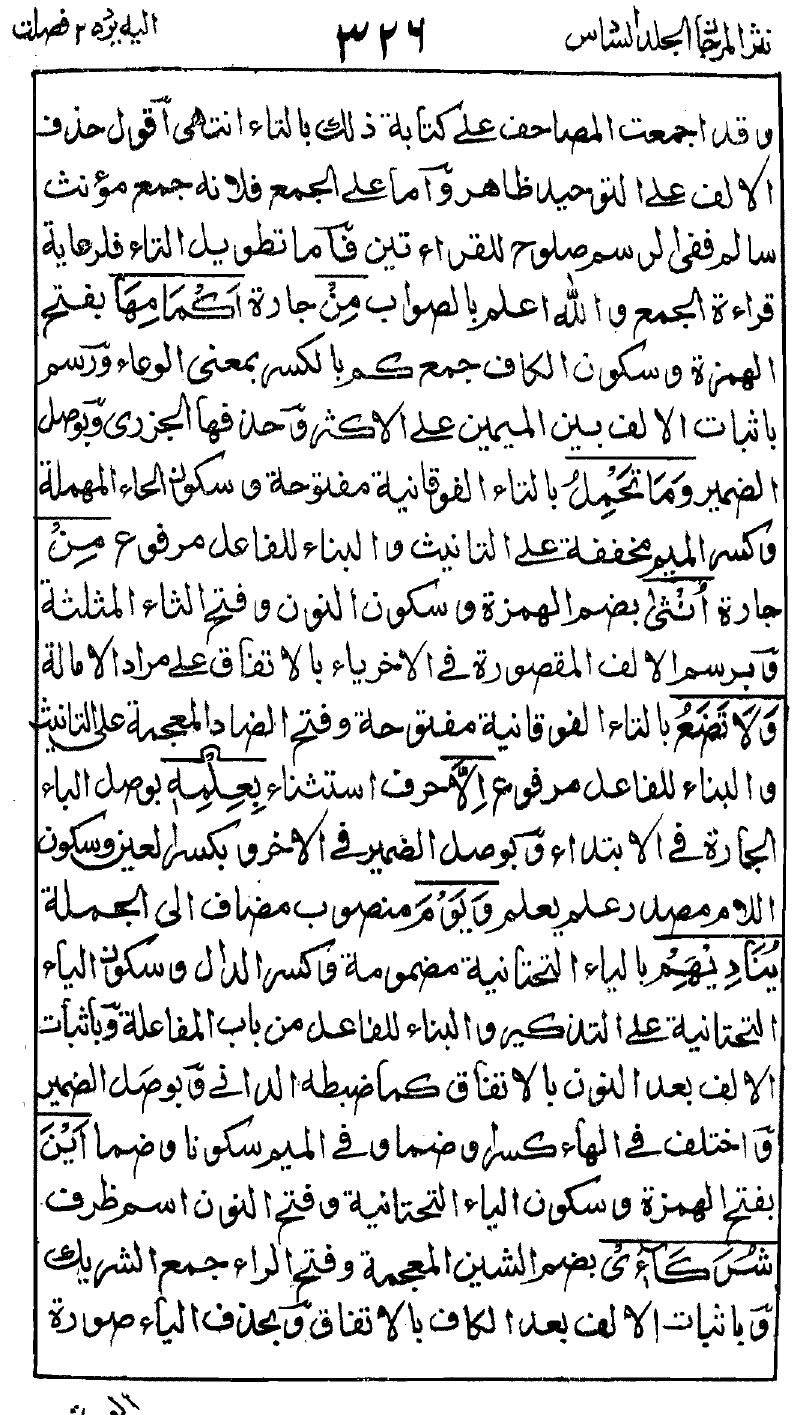 نثر المرجان المجلد السادس ٣٢٦ اليه يرد ٢٥ فصلت
وقد اجمعت المصاحف على كتابة ذلك بالتاء انتهى اقول حذف
الالف على التوحيد ظاهر وّاما على الجمع فلانه جمع مؤنث
سالم ففى الرسم صلوح للقراءتين فّاما تطويل التاء فلرعاية
قراءة الجمع والله اعلم بالصواب مِنْ جارة اَكْمَامِهَا بفتح
الهمزة وسكون الكاف جمع كم بالكسر بمعنى الوعاء وّرسم
باثبات الالف بين الميمين على الاكثر وّحذفها الجزرى وّبوصل
الضمير وَمَا تَحْمِلُ بالتاء الفوقانية مفتوحة وسكون الحاء المهملة
وكسر الميم مخففة على التانيث والبناء للفاعل مرفوع مِنْ
جارة اُنْثٰى بضم الهمزة وسكون النون وفتح الثاء المثلثة
وّبرسم الالف المقصورة فى الاخر ياء بالاتفاق على مراد الامالة
وَلَا تَضَعُ بالتاء الفوقانية مفتوحة وفتح الضاد المعجمة على التانيث
والبناء للفاعل مرفوع اِلَّا حرف استثناء بِعِلْمِهٖ بوصل الباء
الجارة فى الابتداء وّبوصل الضمير فى الاخر وبكسر العين وسكون
اللام مصدر علم يعلم وَيَوْمَ منصوب مضاف الى الجملة
يُنَادِيْهِمْ بالياء التحتانية مضمومة وّكسر الدال وسكون الياء
التحتانية على التذكير والبناء للفاعل من باب المفاعلة وّباثبات
الالف بعد النون بالاتفاق كما ضبطه الدانى وّبوصل الضمير
وّاختلف فى الهاء كسرا وضما وفى الميم سكونا وضما اَيْنَ
بفتح الهمزة وسكون الياء التحتانية وفتح النون اسم ظرف
شُرَكَآءِىْ بضم الشين المعجمة وفتح الراء جمع الشريك
وّباثبات الالف بعد الكاف بالاتفاق وّبحذف الياء صورة